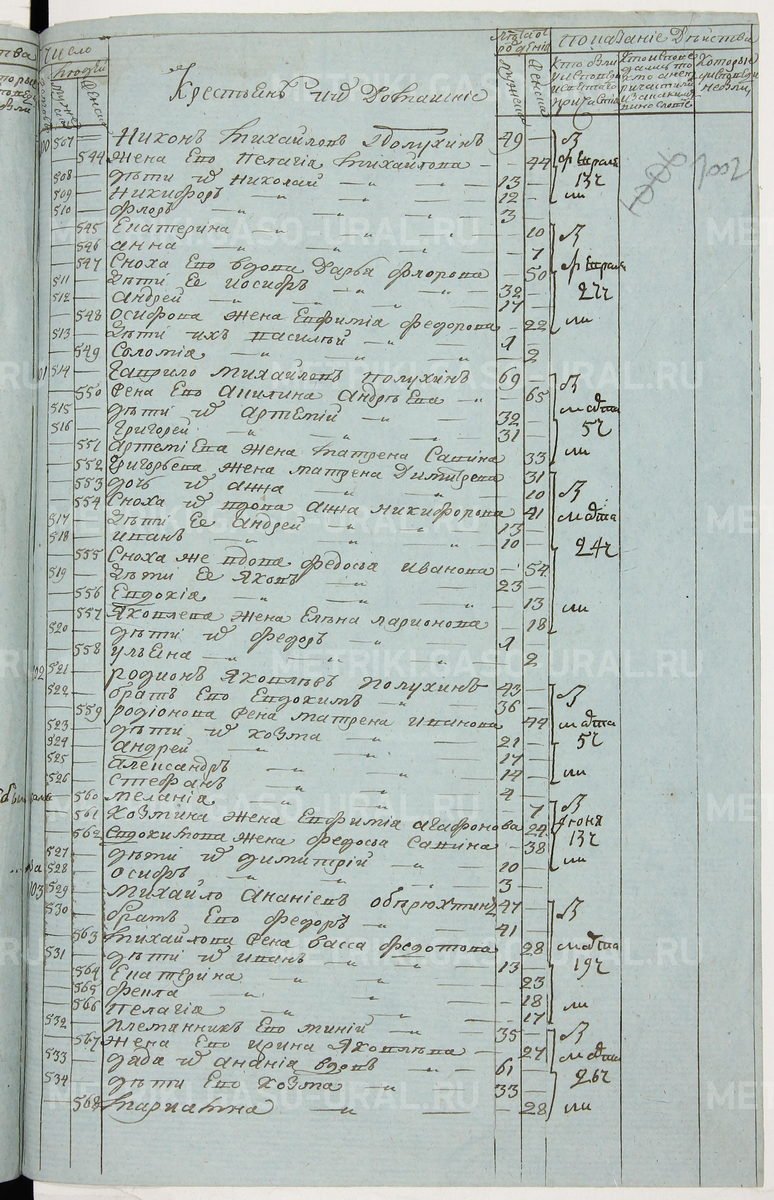 Число
людей
Лѣта от рожденія
Показаніе Дѣйства
Которые
Крестьянѣ и их домашніе
507 Никонъ Михайловъ Полухинъ 49
544 жена Его Пелагіа Михайлова 44
508 дѣти их Николай 13
509 Никифоръ 12
510 Флоръ 3
545 Екатерина 10
546 Анна 7
547 Сноха Его вдова Дарья Флорова 50
511 дѣти Ее Иосифъ 32
512 Андрей 17
548 Осифова жена Евфиміа Федорова 22
513 дѣти ихъ Василей 1
549 Соломіа 2
514 Гаврило Михайловъ Полухинъ 69
550 жена Его Акилина Андрѣева 65
515 дѣти их Артемій 32
516 Григорей 31
551 Артеміева жена Матрена Савина 33
552 Григорьева жена Матрена Димитрева 31
553 дочь их Анна 10
554 Сноха их вдова Анна Никифорова 41
517 дѣти Ее Андрей 13
518 Иванъ 10
555 Сноха же вдова Федосья Иванова 54
519 дѣти Ее Яковъ 23
556 Евдокіа 13
557 Яковлева жена Елена Ларионова 18
520 дѣти их Федоръ 1
558 Ульяна 2
521 Родионъ Яковлевъ Полухинъ 43
522 братъ Его Евдокимъ 36
559 Родіонова жена Матрена Иванова 44
523 дѣти их Козма 21
524 Андрей 17
525 Александръ 14
526 Стефанъ 4
560 Меланіа 7
561 Козмина жена Евфиміа Агафонова 24
562 Евдокимова жена Федосья Савина 38
527 дѣти их Димитрій 10
528 Осифъ 3
529 Михайло Ананіевъ Обрюхтинъ 47
530 братъ Его Федоръ 41
563 Михайлова жена Васса Федотова 28
531 дѣти их Иванъ 13
564 Екатерина 23
565 Фекла 18
566 Пелагіа 17
532 племянникъ Его Миній 35
567 жена Его Ирина Яковлева 27
533 дядя их Ананіа вдовъ 61
534 дѣти Его Козма 33
568 Маріанна 28
В
февраля
13г
ли
В
февраля
27г
ли
В
марта
5г
ли
В
марта
24г
ли
В
марта
5г
ли
В
июня
13г
ли
В
марта
19г
ли
В
марта
26г
ли
1002
METRIKI.GASO-URAL.RU